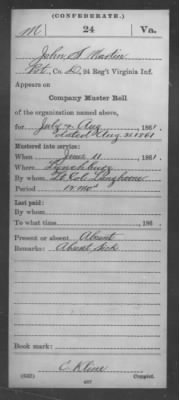 (CONFEDERATE.)
M 24 Va.
John S. Martin
Pvt, Co. D, 24 Reg't Virginia Inf.
Appears on
Company Muster Roll
of the organization named above,
for July & Aug, 1861.
dated Aug 31 1861
Mustered into service:
When June 11, 1861.
Where Lynchburg
By whom Lt Col Langhorne
Period 12 mos
Last paid:
By whom
To what time , 186 .
Present or absent Absent
Remarks: Absent Sick
Book mark:
C. Kline
(642) Copyist.